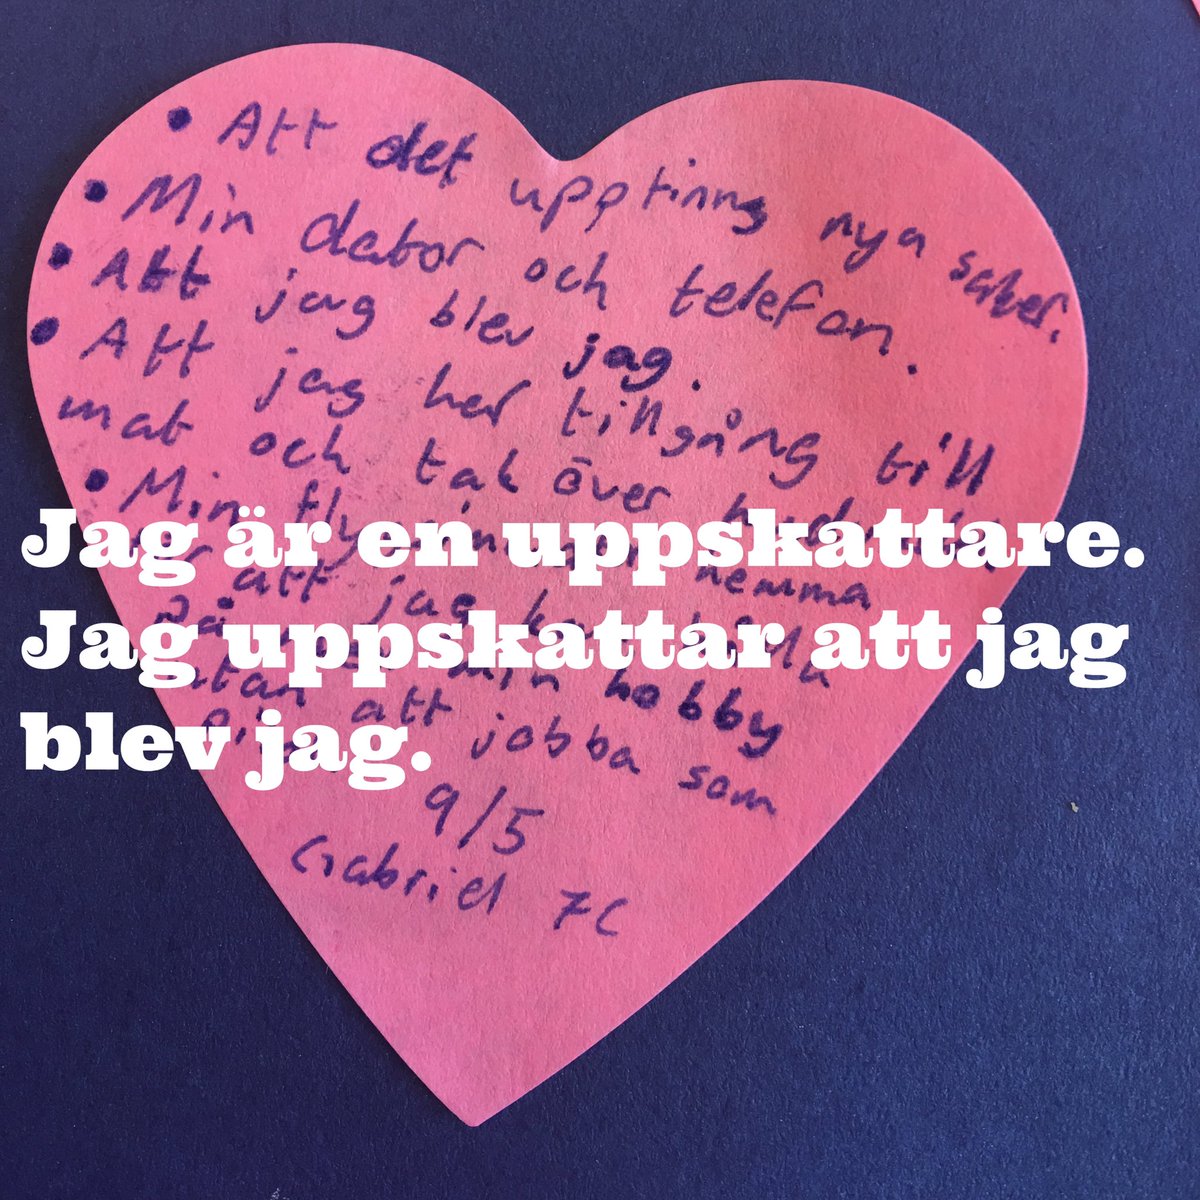 • Att det upptinns nya saker.
• Min dator och telefon.
• Att jag blev jag.
• Att jag har tillgång till
mat och tak över
• Min hemma
att jag
på min hobby
utan att jobba som
9/5
Gabriel 7C
Jag är en uppskattare.
Jag uppskattar att jag
blev jag.